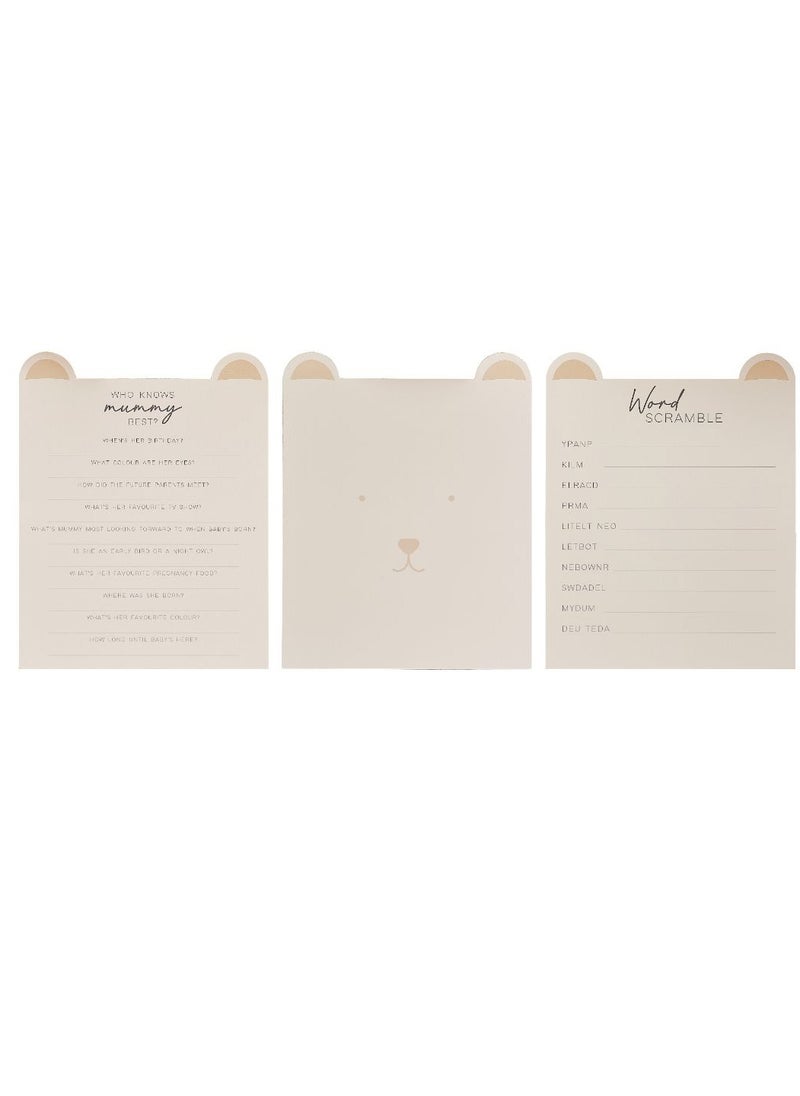 WHO KNOWS
mummy
BEST?
WHEN'S HER BIRTHDAY?
WHAT COLOUR ARE HER EYES?
HOW DID THE FUTURE PARENTS MEET?
WHAT'S HER FAVOURITE TV SHOW?
WHAT'S MUMMY MOST LOOKING FORWARD TO WHEN BABY'S BORN?
IS SHE AN EARLY BIRD OR A NIGHT OWL?
WHAT'S HER FAVOURITE PREGNANCY FOOD?
WHERE WAS SHE BORN?
WHAT'S HER FAVOURITE COLOUR?
HOW LONG UNTIL BABY'S HERE?
Word
SCRAMBLE
YPANP
KILM
ELRACD
PRMA
LITELT NEO
LETBOT
NEBOWNR
SWDADEL
MYDUM
DEU TEDA